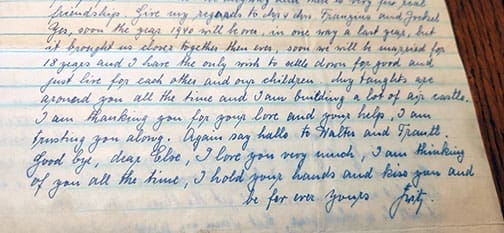 friendship. Give my regards to Mr & Mrs. Franzius and
Yes, soon the year 1940 will be over, in one way a lost year, but
it brought us closer together then ever, soon we will be married for
18 years and I have the only wish to settle down for good and
just live for each other and our children. My taughts are
around you all the time and I am building a lot of air castle.
I am thanking you for your love and your help, I am
trusting you along. Again say hallo to Walter and Trautl.
Good bye, dear Else, I love you very much, I am thinking
of you all the time, I hold your hands and kiss you and
be for ever yours Fritz.